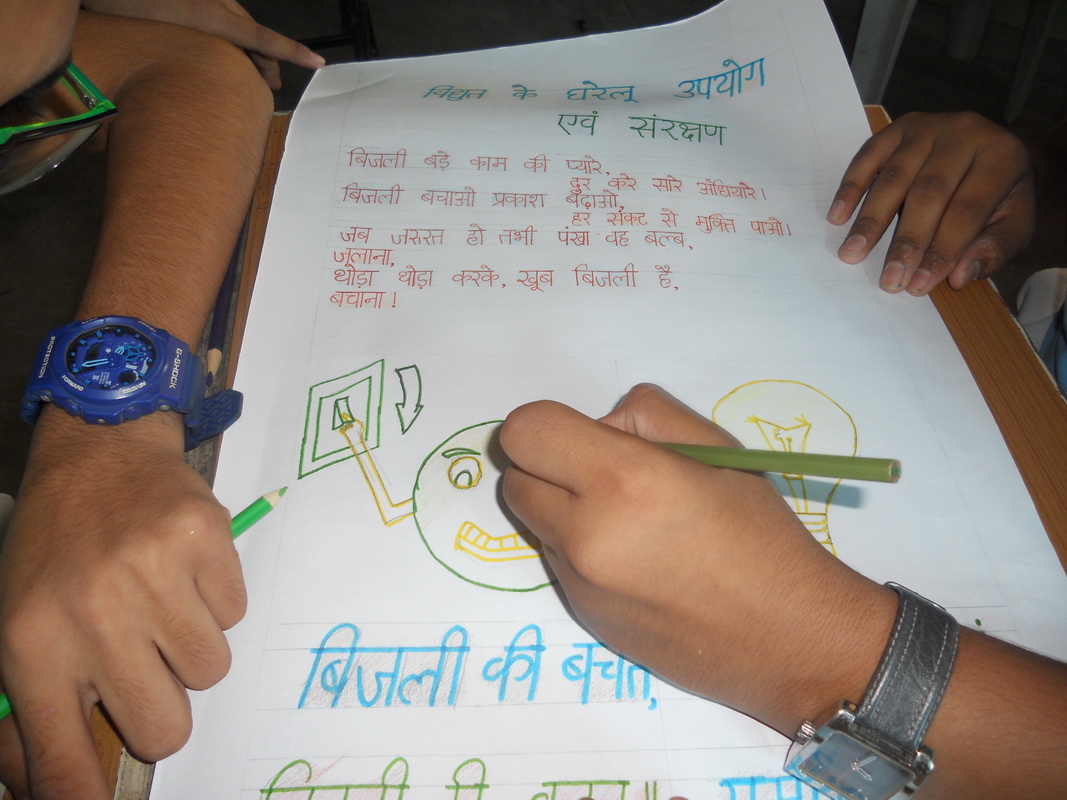 विद्युत के घरेलू उपयोग
एवं संरक्षण
बिजली बड़े काम की प्यारे,
दुर करे सारे अँधियारे।
बिजली बचाओ प्रकाश बढ़ाओ,
हर संकट से मुक्ति पाओ।
जब जरुरत हो तभी पंखा वह बल्ब,
जूलाना,
थोड़ा थोड़ा करके, खूब बिजली है,
बचाना!
PROTECTION
G-SHOCK
बिजली की बचत,